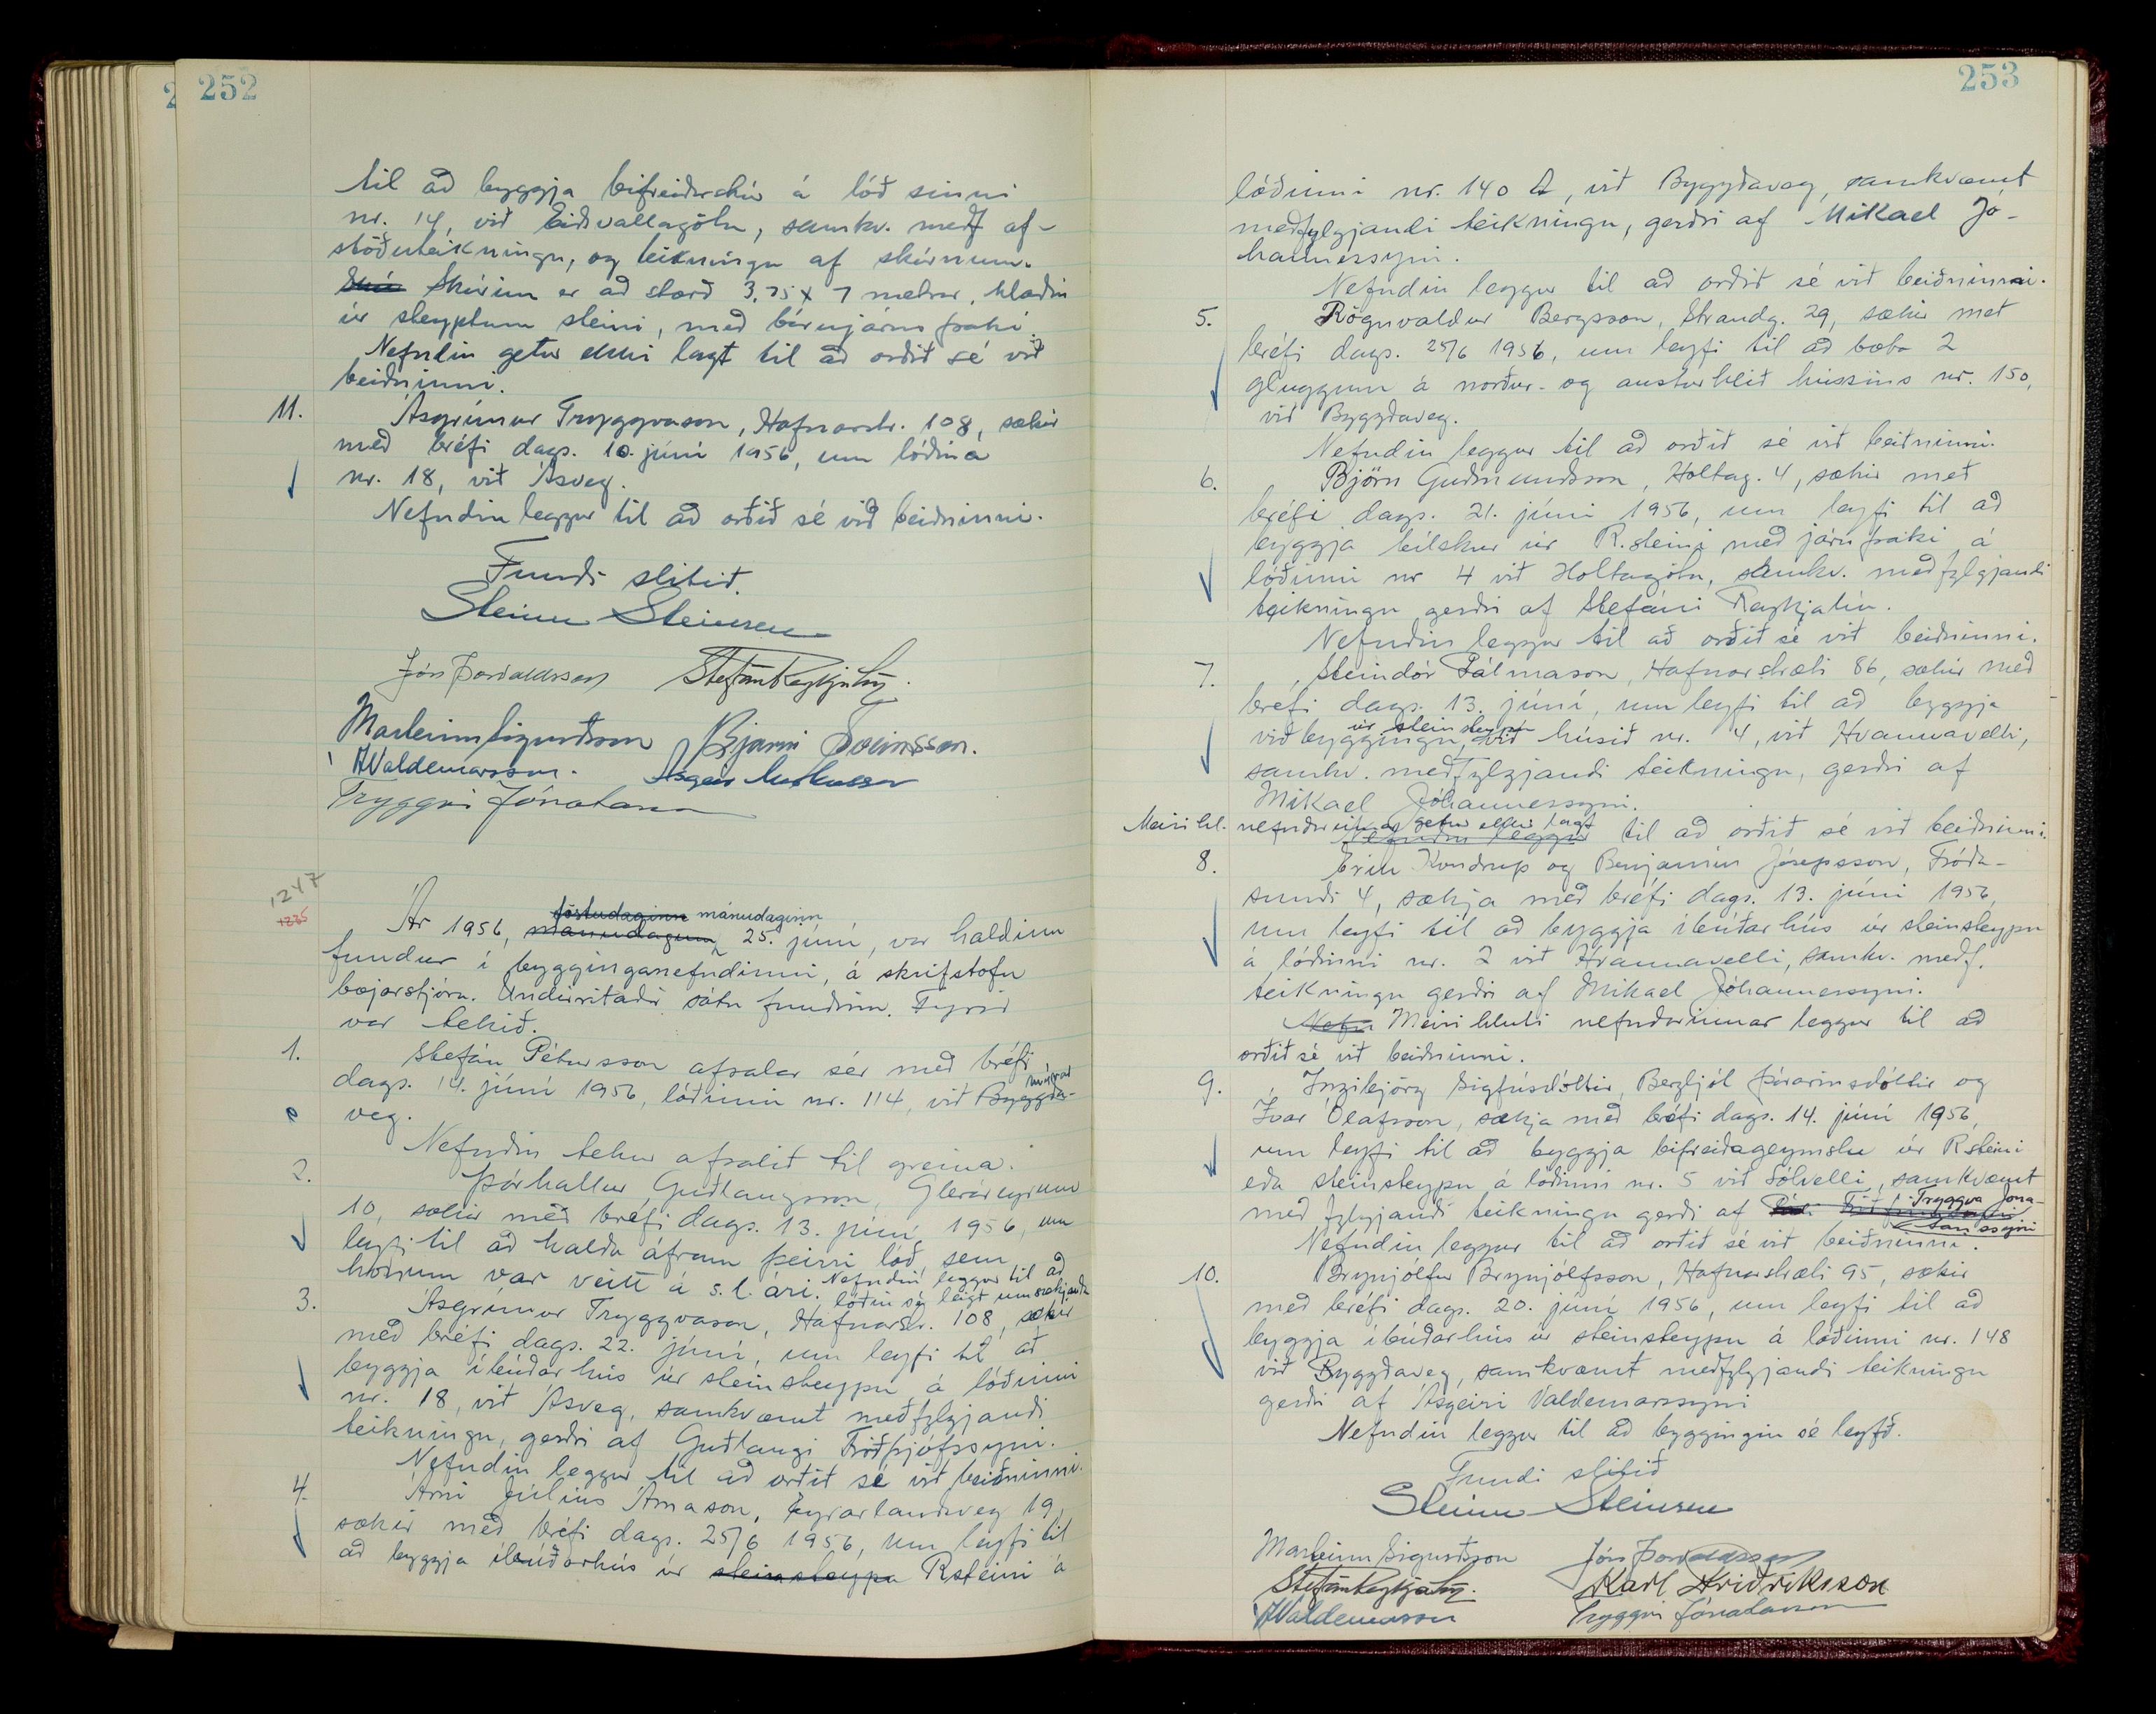 252
til að byggja bifreiðarskúr á lóð sinni
nr. 14, við Eiðsvallagötu, samkv. meðf. af-
stöðuteikningu, og teikningu af skúrnum.
Skúrinn er að stærð 3,75 x 7 metrar, hlaðin
úr steyptum steini, með bárujárnsþaki.
Nefndin getur ekki lagt til að orðið sé við
beiðninni.
11. Ásgrímur Tryggvason, Hafnarstr. 108, sækir
með bréfi dags. 10. júní 1956, um lóðina
nr. 18, við Ásveg.
Nefndin leggur til að orðið sé við beiðninni.
Fundi slitið.
Steinn Steinsen
Jón Þorvaldsson Stefán Reykjalín.
Marteinn Sigurðsson Bjarni Sveinsson.
Á Valdemarsson. Ásgeir Markússon
Tryggvi Jónatansson
1247
1235
föstudaginn mánudaginn
Ár 1956, mánudaginn 25. júní, var haldinn
fundur í bygginganefndinni, á skrifstofu
bæjarstjóra. Undirritaðir sátu fundinn. Fyrir
var tekið.
1. Stefán Pétursson afsalar sér með bréfi
dags. 14. júní 1956, lóðinni nr. 114, við Byggða-
veg.
Nefndin tekur afsalið til greina.
2. Þórhallur Guðlaugsson, Gleráreyrum
10, sækir með bréfi dags. 13. júní 1956, um
leyfi til að halda áfram þeirri lóð, sem
honum var veitt á s.l. ári. Nefndin leggur til að
lóðin sé leigð umsækjanda
3. Ásgrímur Tryggvason, Hafnarstr. 108, sækir
með bréfi dags. 22. júní, um leyfi til að
byggja íbúðarhús úr steinsteypu á lóðinni
nr. 18, við Ásveg, samkvæmt meðfylgjandi
teikningu, gerðri af Guðlaugi Friðþjófssyni.
Nefndin leggur til að orðið sé við beiðninni.
4. Árni Júlíus Árnason, Eyrarlandsveg 19,
sækir með bréfi dags. 25/6 1956, um leyfi til
að byggja íbúðarhús úr steinsteypu Rsteini á
253
lóðinni nr. 140 A, við Byggðaveg, samkvæmt
meðfylgjandi teikningu, gerðri af Mikael Jó-
hannessyni.
Nefndin leggur til að orðið sé við beiðninni.
5. Rögnvaldur Bergsson, Strandg. 29, sækir með
bréfi dags. 25/6 1956, um leyfi til að bæta 2
gluggum á norður- og austurhlið hússins nr. 150,
við Byggðaveg.
Nefndin leggur til að orðið sé við beiðninni.
6. Björn Guðmundsson, Holtag. 4, sækir með
bréfi dags. 21. júní 1956, um leyfi til að
byggja bílskúr úr R.steini með járnþaki á
lóðinni nr 4 við Holtagötu, samkv. meðfylgjandi
teikningu gerðri af Stefáni Reykjalín.
Nefndin leggur til að orðið sé við beiðninni.
7. Steindór Pálmason, Hafnarstræti 86, sækir með
bréfi dags. 13. júní, um leyfi til að byggja
úr steinsteypu
viðbyggingu, við húsið nr. 4, við Hvannavelli,
samkv. meðfylgjandi teikningu, gerðri af
Mikael Jóhannessyni.
Meiri hl. nefndarinnar getur ekki lagt
Nefndin leggur til að orðið sé við beiðninni.
8. Erik Kondrup og Benjamín Jósepsson, Fróða-
sundi 4, sækja með bréfi dags. 13. júní 1956,
um leyfi til að byggja íbúðarhús úr steinsteypu
á lóðinni nr. 2 við Hvannavelli, samkv. meðf.
teikningu gerðri af Mikael Jóhannessyni.
Nefn Meiri hluti nefndarinnar leggur til að
orðið sé við beiðninni.
9. Ingibjörg Sigfúsdóttir, Bergljót Þórarinsdóttir og
Ívar Ólafsson, sækja með bréfi dags. 14. júní 1956,
um leyfi til að byggja bifreiðageymslu úr Rsteini
eða steinsteypu á lóðinni nr. 5 við Sólvelli, samkvæmt
með fylgjandi teikningu gerðri af Tryggva Jóna-
tanssyni
Nefndin leggur til að orðið sé við beiðninni.
10. Brynjólfur Brynjólfsson, Hafnarstræti 95, sækir
með bréfi dags. 20. júní 1956, um leyfi til að
byggja íbúðarhús úr steinsteypu á lóðinni nr. 148
við Byggðaveg, samkvæmt meðfylgjandi teikningu
gerðri af Ásgeiri Valdemarssyni
Nefndin leggur til að byggingin sé leyfð.
Fundi slitið
Steinn Steinsen
Marteinn Sigurðsson Jón Þorvaldsson
Stefán Reykjalín. Karl Friðriksson
Á Valdemarsson Tryggvi Jónatansson